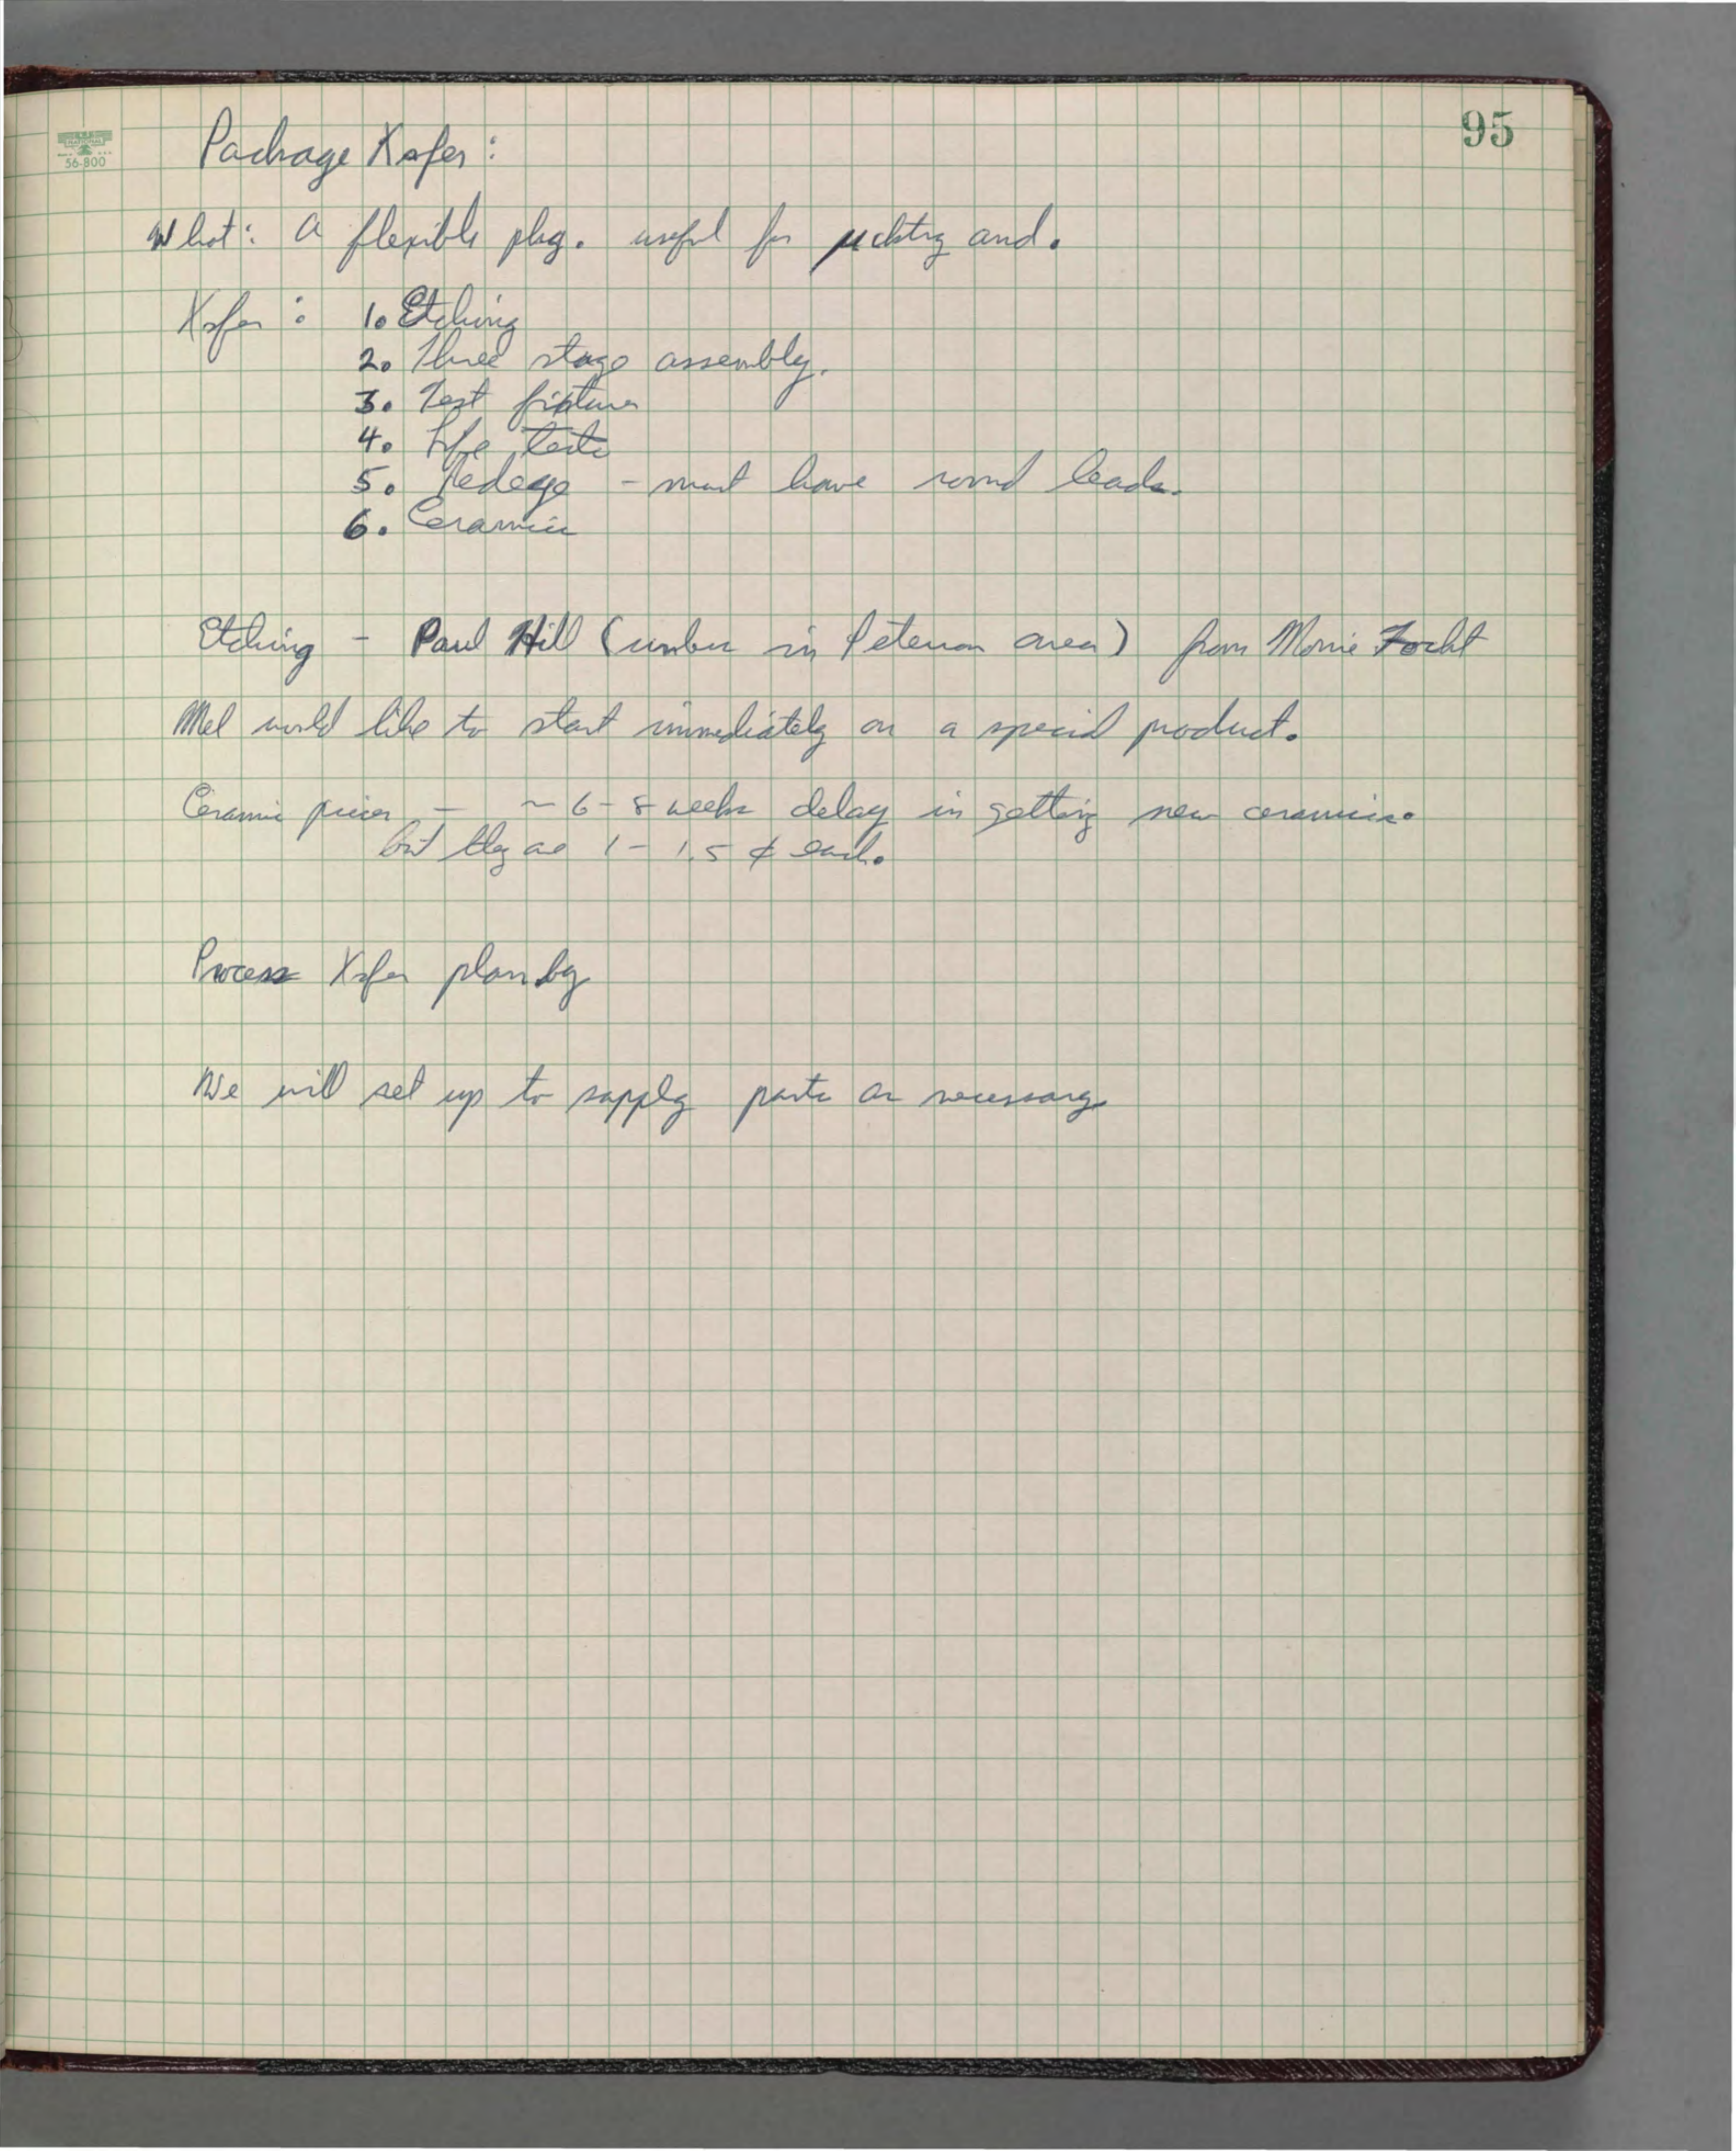 95
NATIONAL
56-800
Package Xsfer:
What: A flexible pkg. useful for μcktry and.
Xsfer: 1. Etching
2. Three stage assembly.
3. Test fixtures
4. Life tests
5. - must have round leads.
6. Ceramics
Etching - Paul Hill (under in Peterson area) from Morrie Focht
Mel would like to start immediately on a special product.
Ceramic pieces - ~ 6-8 weeks delay in getting new ceramics.
but they are 1-1.5 ¢ each.
Process Xsfer plan by
We will set up to supply parts as necessary